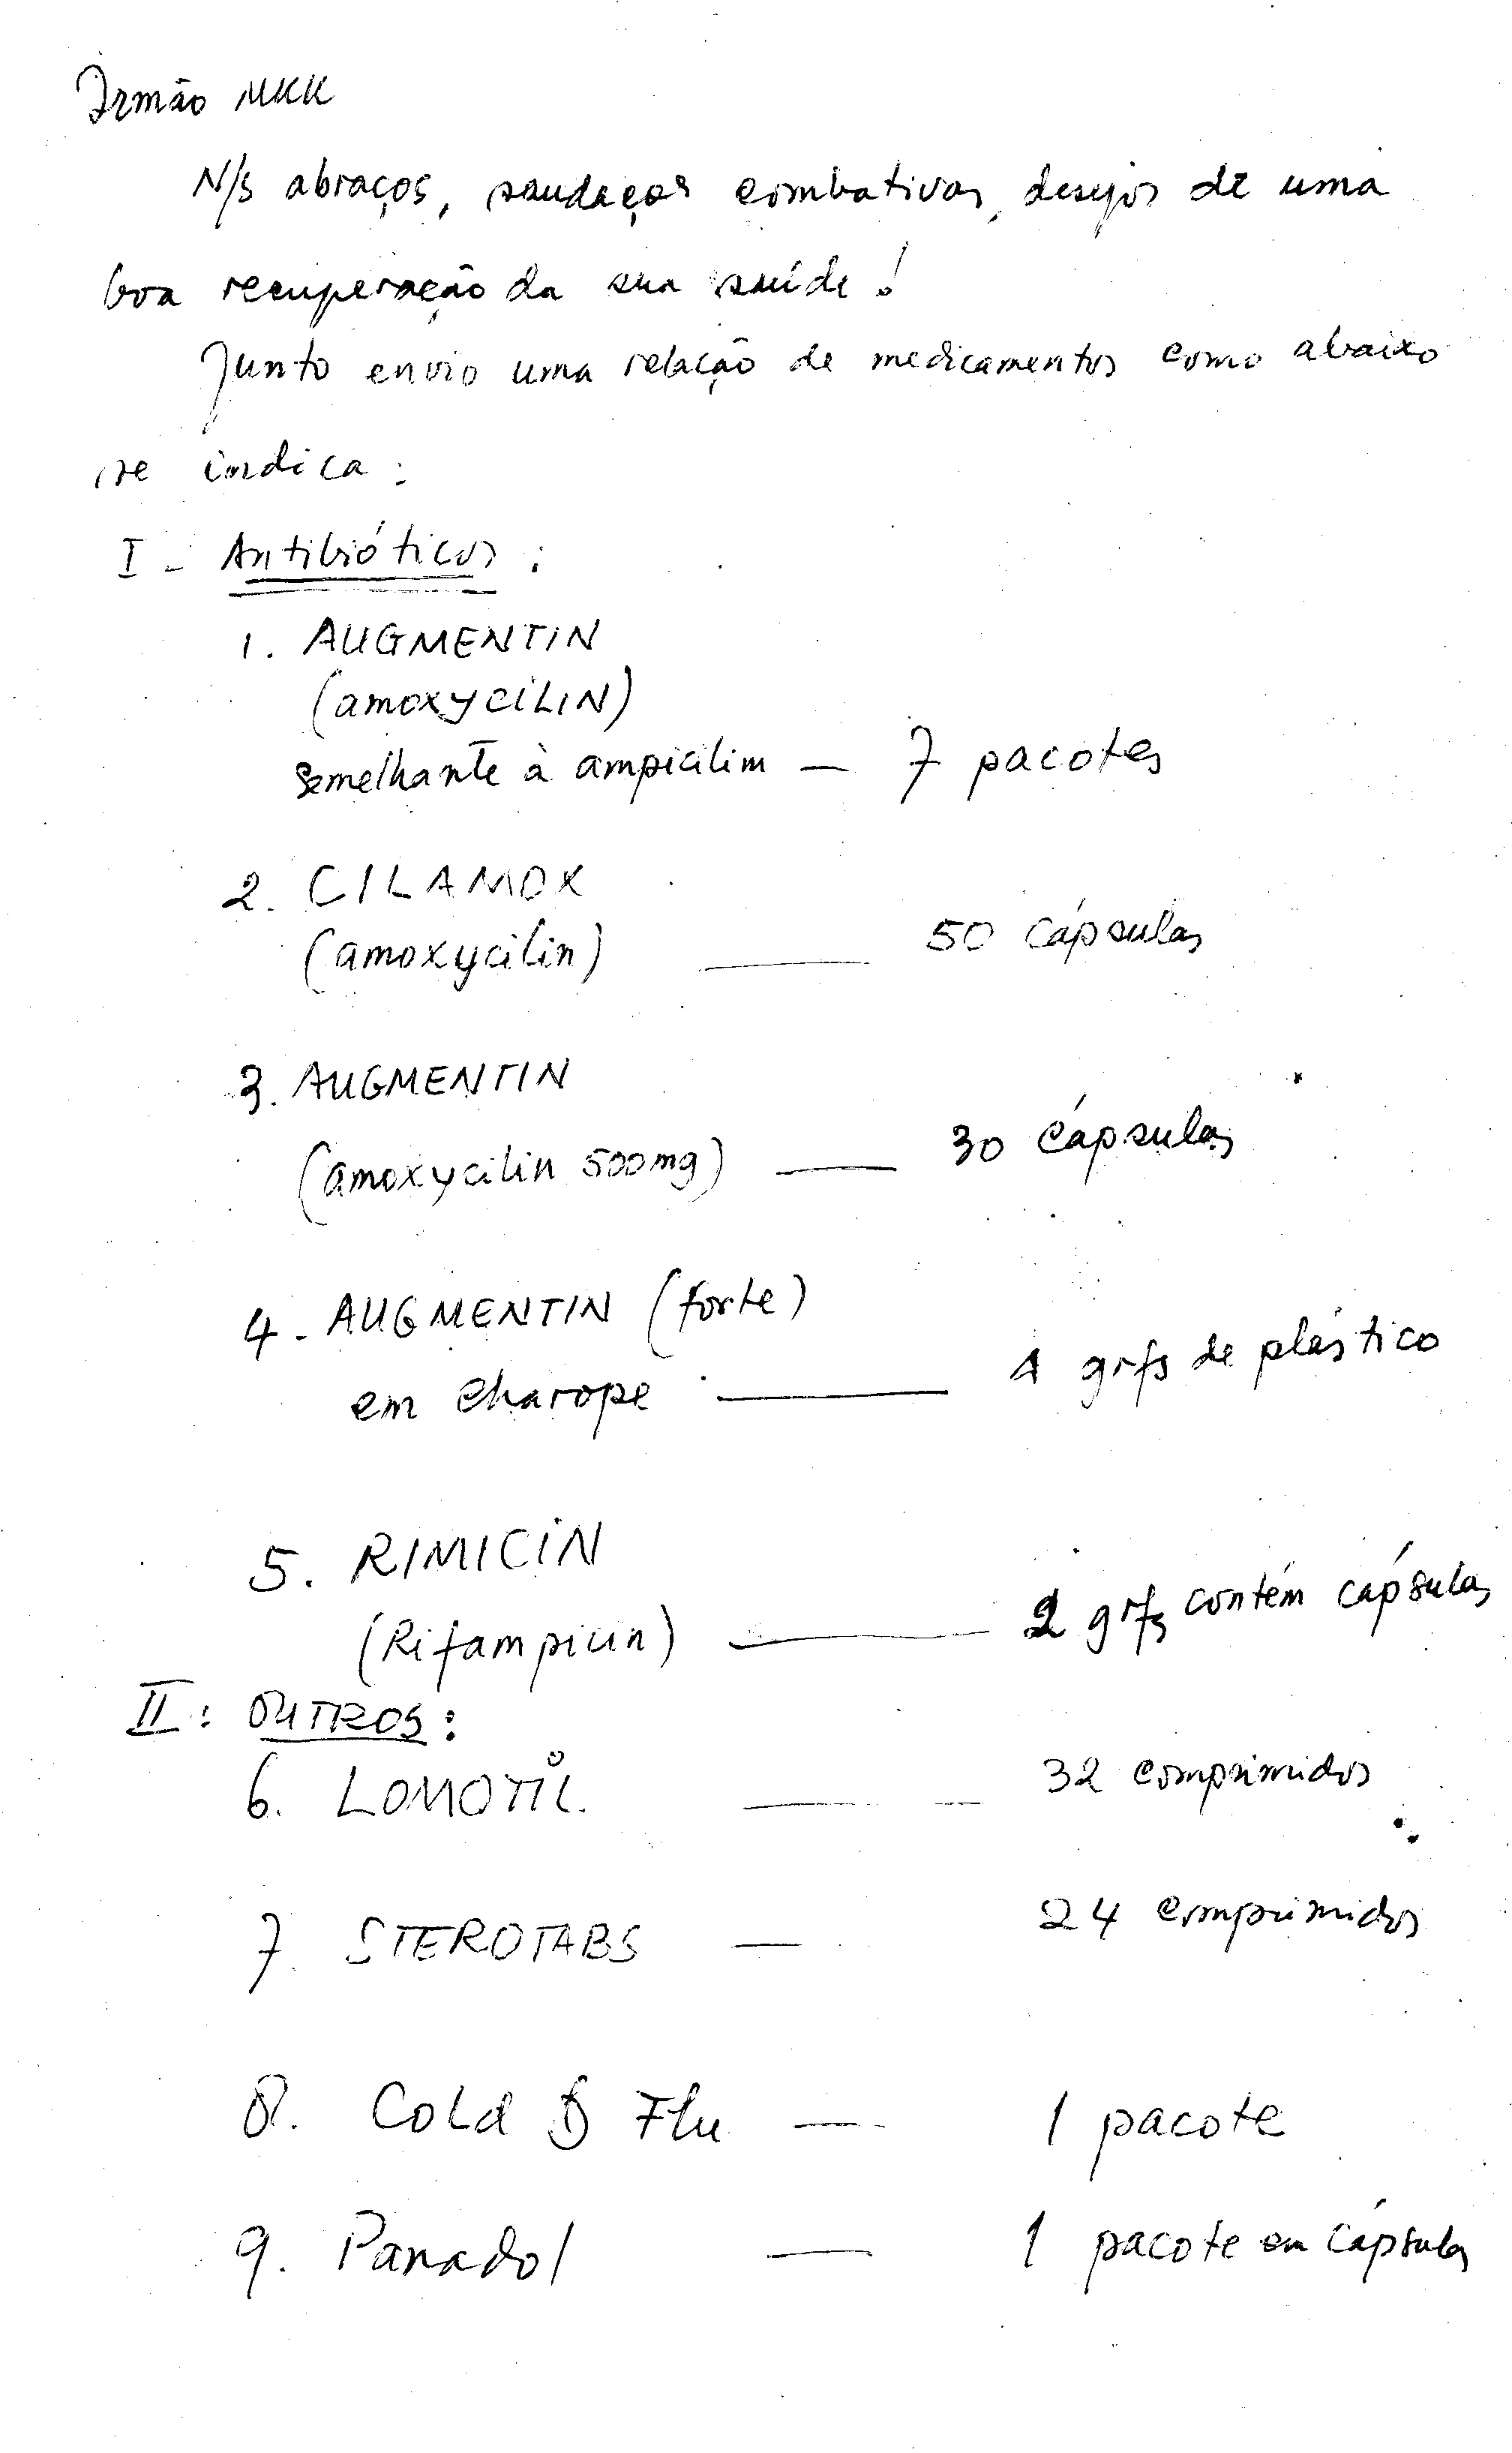 Irmão MKK
N/s abraços, saudaços combativas, desejos de uma
boa recuperação da sua saúde!
Junto envio uma relação de medicamentos como abaixo
se indica:
I - Antibióticos:
1. AUGMENTIN
(amoxyciLIN)
semelhante à ampicilim — 7 pacotes
2. CILAMOX
(amoxycilin) — 50 cápsulas
3. AUGMENTIN
(amoxycilin 500mg) — 30 cápsulas
4. AUGMENTIN (forte)
em charope — 1 grfs de plástico
5. RIMICIN
(Rifampicin) — 2 grfs contém cápsulas
II: OUTROS:
6. LOMOTIL — 32 comprimidos
7. STEROTABS — 24 comprimidos
8. Cold & Flu — 1 pacote
9. Panadol — 1 pacote em cápsulas